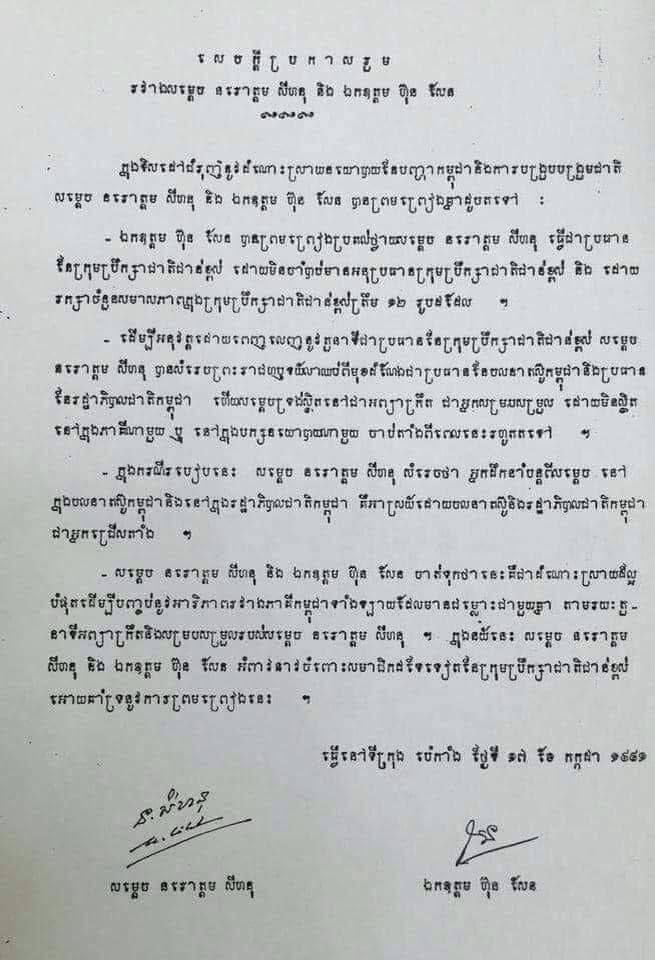 សេចក្តីប្រកាសរួម
រវាងសម្តេច នរោត្តម សីហនុ និង ឯកឧត្តម ហ៊ុន សែន
ក្នុងទិសដៅជំរុញនូវដំណោះស្រាយនយោបាយនៃបញ្ហាកម្ពុជានិងការបង្រួបបង្រួមជាតិ
សម្តេច នរោត្តម សីហនុ និង ឯកឧត្តម ហ៊ុន សែន បានព្រមព្រៀងគ្នាដូចតទៅ :
- ឯកឧត្តម ហ៊ុន សែន បានព្រមព្រៀងប្រគល់ថ្វាយសម្តេច នរោត្តម សីហនុ ធ្វើជាប្រធាន
នៃក្រុមប្រឹក្សាជាតិជាន់ខ្ពស់ ដោយមិនចាំបាច់មានអនុប្រធានក្រុមប្រឹក្សាជាតិជាន់ខ្ពស់ និង ដោយ
រក្សាចំនួនសមាសភាពក្នុងក្រុមប្រឹក្សាជាតិជាន់ខ្ពស់ត្រឹម ១២ រូបដដែល ។
- ដើម្បីអនុវត្តដោយពេញលេញនូវតួនាទីជាប្រធាននៃក្រុមប្រឹក្សាជាតិជាន់ខ្ពស់ សម្តេច
នរោត្តម សីហនុ បានសំរេចព្រះរាជហឫទ័យលាឈប់ពីមុខដំណែងជាប្រធាននៃចលនាតស៊ូកម្ពុជានិងប្រធាន
នៃរដ្ឋាភិបាលជាតិកម្ពុជា ហើយសម្តេចទ្រង់ស្ថិតនៅជាអព្យាក្រឹត ជាអ្នកសម្របសម្រួល ដោយមិនស្ថិត
នៅក្នុងភាគីណាមួយ ឬ នៅក្នុងបក្សនយោបាយណាមួយ ចាប់តាំងពីពេលនេះរហូតតទៅ ។
- ក្នុងករណីរបៀបនេះ សម្តេច នរោត្តម សីហនុ សំរេចថា អ្នកដឹកនាំបន្តពីសម្តេច នៅ
ក្នុងចលនាតស៊ូកម្ពុជានិងនៅក្នុងរដ្ឋាភិបាលជាតិកម្ពុជា គឺអាស្រ័យដោយចលនាតស៊ូនិងរដ្ឋាភិបាលជាតិកម្ពុជា
ជាអ្នកជ្រើសតាំង ។
- សម្តេច នរោត្តម សីហនុ និង ឯកឧត្តម ហ៊ុន សែន ចាត់ទុកថានេះគឺជាដំណោះស្រាយដ៏ល្អ
បំផុតដើម្បីបញ្ចប់នូវអាទិភាពរវាងភាគីកម្ពុជាទាំងឡាយដែលមានជម្លោះជាមួយគ្នា តាមរយៈតួ-
នាទីអព្យាក្រឹតនិងសម្របសម្រួលរបស់សម្តេច នរោត្តម សីហនុ ។ ក្នុងន័យនេះ សម្តេច នរោត្តម
សីហនុ និង ឯកឧត្តម ហ៊ុន សែន អំពាវនាវចំពោះសមាជិកដទៃទៀតនៃក្រុមប្រឹក្សាជាតិជាន់ខ្ពស់
អោយគាំទ្រនូវការព្រមព្រៀងនេះ ។
ធ្វើនៅទីក្រុង ប៉េកាំង ថ្ងៃទី ១៧ ខែ កក្កដា ១៩៩១
ន. សីហនុ
សម្តេច នរោត្តម សីហនុ ឯកឧត្តម ហ៊ុន សែន